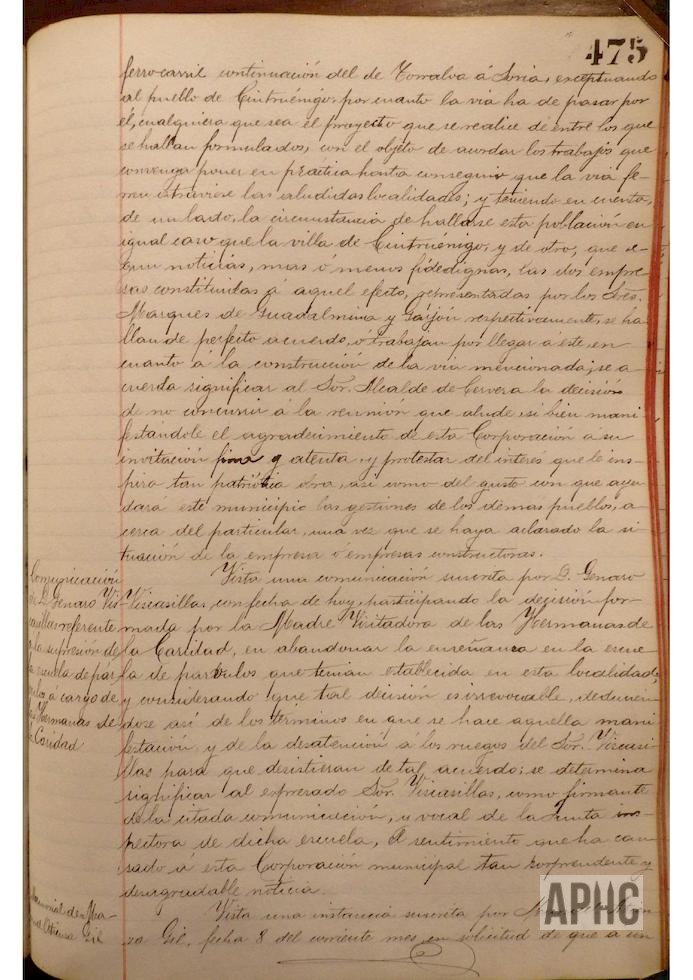 475
ferrocarril continuación del de Torralva á Soria, exceptuando
al pueblo de Cintruénigo, por cuanto la via ha de pasar por
él, cualquiera que sea el proyecto que se realice de entre los que
se hallan formulados, con el objeto de acordar los trabajos que
convenga poner en práctica hasta conseguir que la via fe-
rrea atraviese las aludidas localidades; y teniendo en cuenta,
de un lado, la circunstancia de hallarse esta población en
igual caso que la villa de Cintruénigo, y de otro, que se-
gun noticias, mas ó menos fidedignas, las dos empre-
sas constituidas á aquel efecto, representadas por los Sres.
Marqués de Guadalmina y Gaijón respectivamente, se ha-
llan de perfecto acuerdo, ó trabajan por llegar á este, en
cuanto á la construcción de la via mencionada; se a-
cuerda significar al Sor. Alcalde de Cervera la decisión
de no concurrir á la reunión que alude, si bien mani
festándole el agradecimiento de esta Corporación á su
invitación fina y atenta, y protestar del interés que le ins-
pira tan patriótica obra, asi como del gusto con que ayu
dará este municipio las gestiones de los demas pueblos, a-
cerca del particular, una vez que se haya aclarado la si-
tuación de la empresa ó empresas constructoras.
Comunicación
de D. Genaro Vis-
casillas referente
a la supresión de
la escuela de pár-
vulos á cargo de
las Hermanas de
la Caridad
Vista una comunicación suscrita por D. Genaro
Viscasillas, con fecha de hoy, participando la decisión for-
mada por la Madre Visitadora de las Hermanas de
la Caridad, en abandonar la enseñanza en la escue
la de parbulos que tenian establecida en esta localidad;
y considerando que tal decisión es irrevocable, deducien-
dose asi de los términos en que se hace aquella mani
festación, y de la desatención á los ruegos del Sor. Viscasi-
llas para que desistieran de tal acuerdo; se determina
significar al expresado Sor. Viscasillas, como firmante
de la citada comunicación, y vocal de la Junta ins-
pectora de dicha escuela, el sentimiento que ha cau-
sado á esta Corporación municipal tan sorprendente y
desagradable noticia.
Gil
Vista una instancia suscrita por
Gil, fecha 8 del corriente mes, en solicitud de que á un
APHC